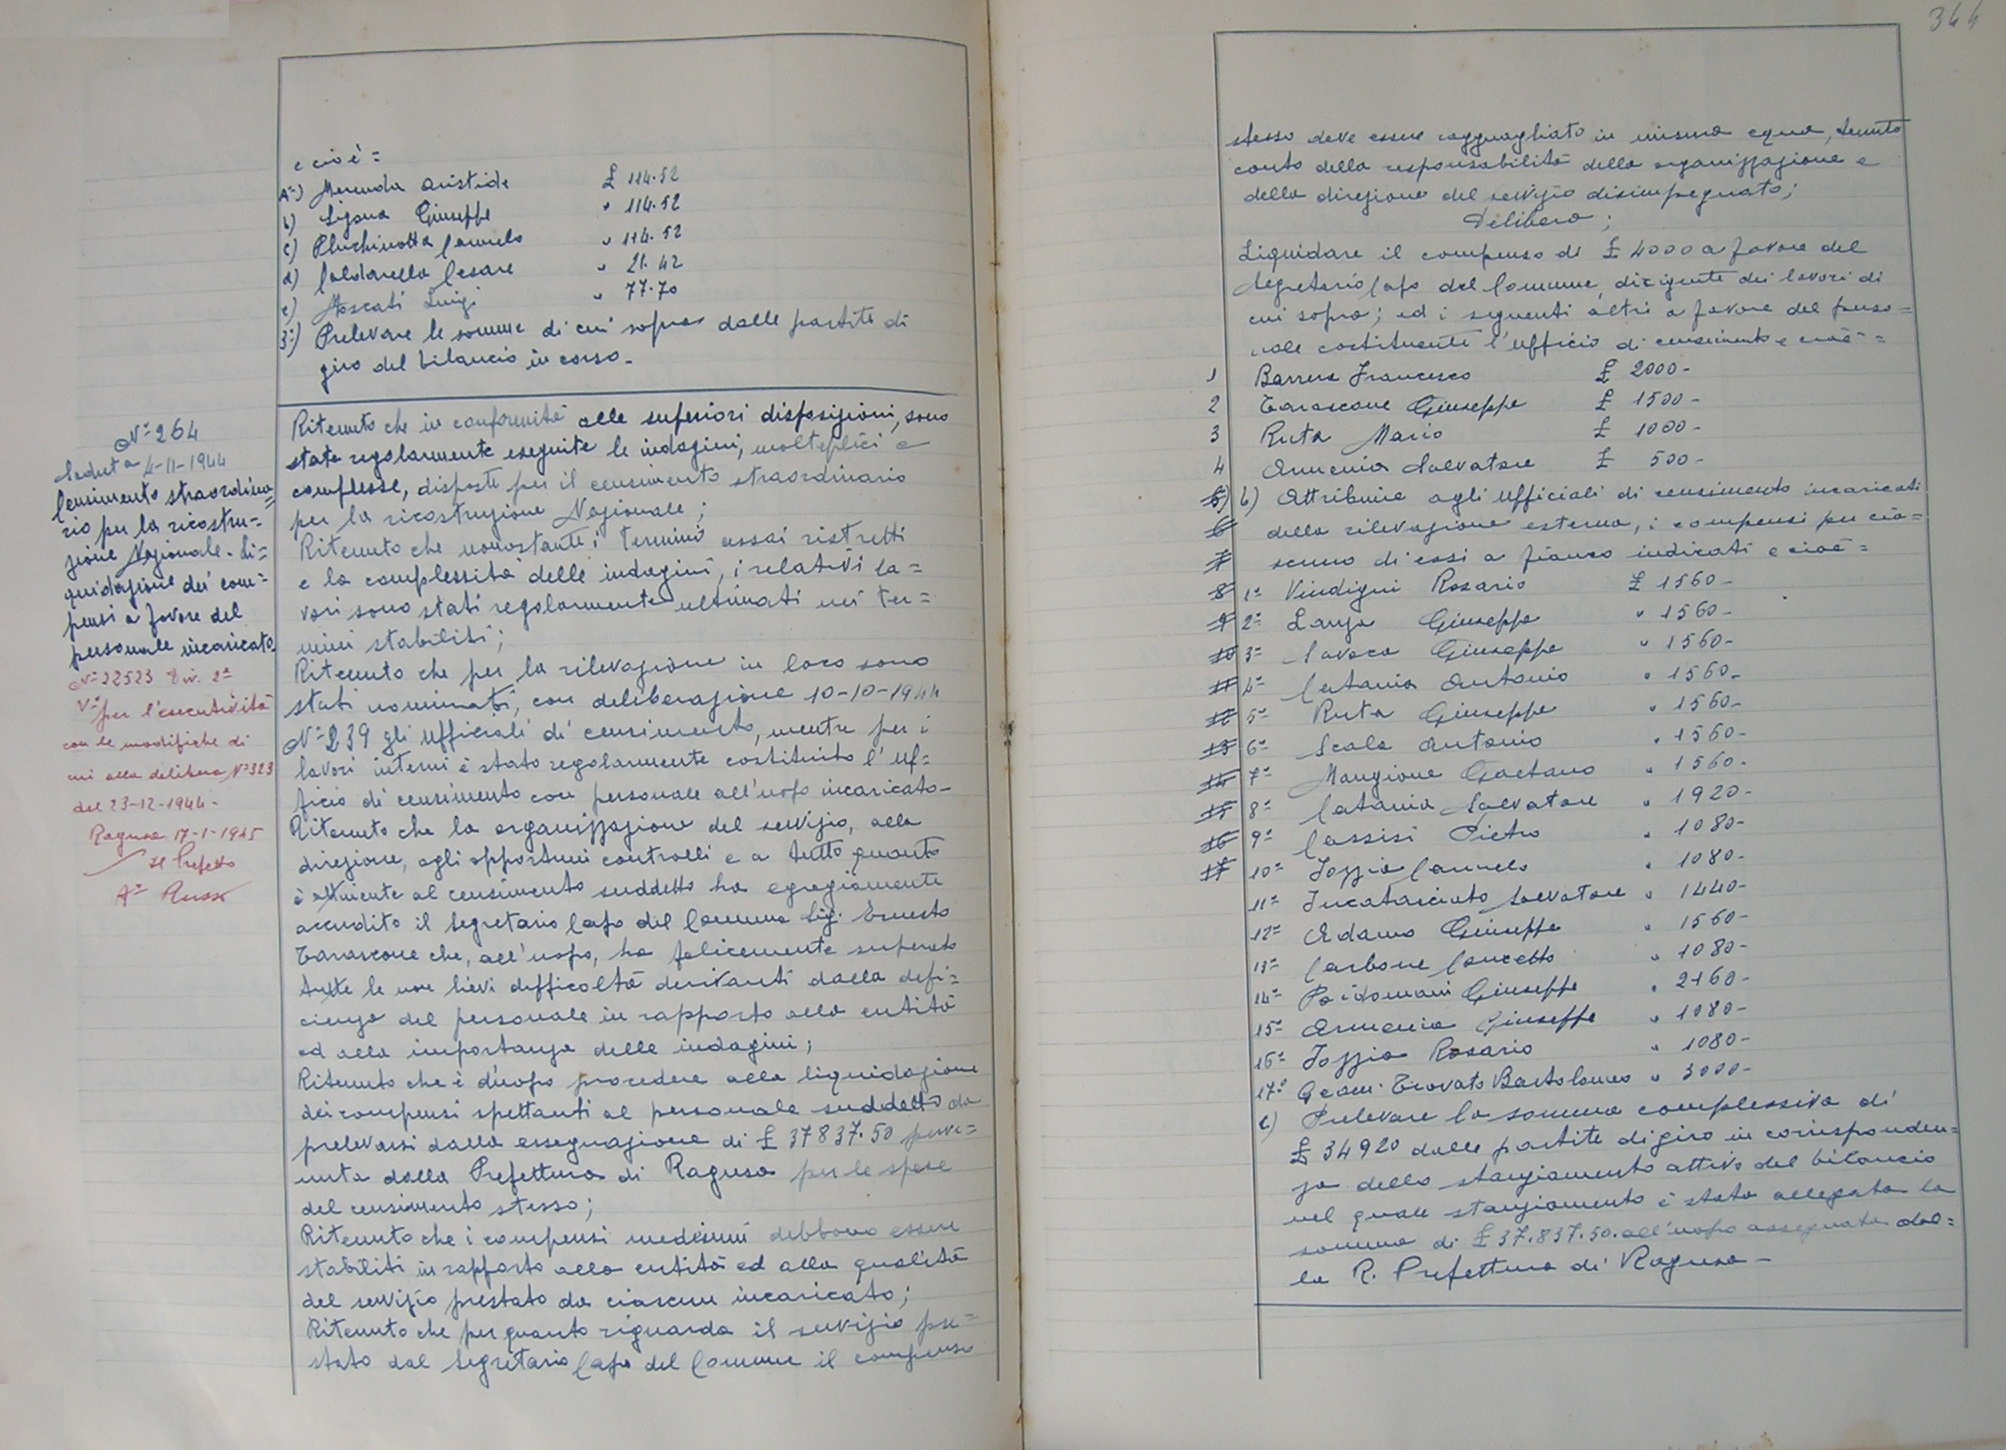 e cioè =
A=) Merenda Aristide £ 114.52
b) Ligora Giuseppe " 114.52
c) Pluchinotta Carmelo " 114.52
d) Caldarella Cesare " 21.42
e) Moscati Luigi " 77.70
3=) Prelevare le somme di cui sopra dalle partite di
giro del bilancio in corso.-
N= 264
Seduta 4-11-1944
Censimento straordina=
rio per la ricostru=
zione Nazionale. Li=
quidazione dei com=
pensi a favore del
personale incaricato
N= 22523 Div. 2=
V= per l'esecutività
con le modifiche di
cui alla delibera N= 323
del 23-12-1944-
Ragusa 17-1-1945
Il Prefetto
Russo
Ritenuto che in conformità alle superiori disposizioni, sono
state regolarmente eseguite le indagini, molteplici e
complesse, disposte per il censimento straordinario
per la ricostruzione Nazionale;
Ritenuto che nonostante i termini assai ristretti
e la complessità delle indagini, i relativi la=
vori sono stati regolarmente ultimati nei ter=
mini stabiliti;
Ritenuto che per la rilevazione in loco sono
stati nominati, con deliberazione 10-10-1944
N= 239 gli ufficiali di censimento, mentre per i
lavori interni è stato regolarmente costituito l'uf=
ficio di censimento con personale all'uopo incaricato-
Ritenuto che la organizzazione del servizio, alla
direzione, agli opportuni controlli e a tutto quanto
è attinente al censimento suddetto ha egregiamente
accudito il Segretario Capo del Comune Sig. Ernesto
Tarascone che, all'uopo, ha felicemente superato
tutte le non lievi difficoltà derivanti dalla defi=
cienza del personale in rapporto alla entità
ed alla importanza delle indagini;
Ritenuto che è d'uopo procedere alla liquidazione
dei compensi spettanti al personale suddetto da
prelevarsi dalla assegnazione di £ 37837.50 perve=
nuta dalla Prefettura di Ragusa per le spese
del censimento stesso;
Ritenuto che i compensi medesimi debbono essere
stabiliti in rapporto alla entità ed alla qualità
del servizio prestato da ciascun incaricato;
Ritenuto che per quanto riguarda il servizio pre=
stato dal Segretario Capo del Comune il compenso
344
stesso deve essere ragguagliato in misura equa, tenuto
conto della responsabilità della organizzazione e
della direzione del servizio disimpegnato;
Delibera;
Liquidare il compenso di £ 4000 a favore del
Segretario Capo del Comune, dirigente dei lavori di
cui sopra; ed i seguenti altri a favore del perso=
nale costituente l'ufficio di censimento e cioè =
1 Barrera Francesco £ 2000-
2 Tarascone Giuseppe £ 1500-
3 Ruta Mario £ 1000-
4 Armenia Salvatore £ 500-
5) b) Attribuire agli ufficiali di censimento incaricati
6 della rilevazione esterna, i compensi per cia=
7 scuno di essi a fianco indicati e cioè =
8 1= Vindigni Rosario £ 1560-
9 2= Lauza Giuseppe " 1560-
10 3= Savoca Giuseppe " 1560-
11 4= Catania Antonio " 1560-
12 5= Ruta Giuseppe " 1560-
13 6= Scala Antonio " 1560-
14 7= Mangione Gaetano " 1560-
15 8= Catania Salvatore " 1920-
16 9= Cassisi Pietro " 1080-
17 10= Iozzia Carmelo " 1080-
11= Incatasciato Salvatore " 1440-
12= Adamo Giuseppe " 1560-
13= Carbone Concetto " 1080-
14= Paidomani Giuseppe " 2160-
15= Armenia Giuseppe " 1080-
16= Iozzia Rosario " 1080-
17= Geom. Trovato Bartolomeo " 3000-
c) Prelevare la somma complessiva di
£ 34920 dalle partite di giro in corrisponden=
za dello stanziamento attivo del bilancio
nel quale stanziamento è stata allegata la
somma di £ 37.837.50. all'uopo assegnata dal=
la R. Prefettura di Ragusa-